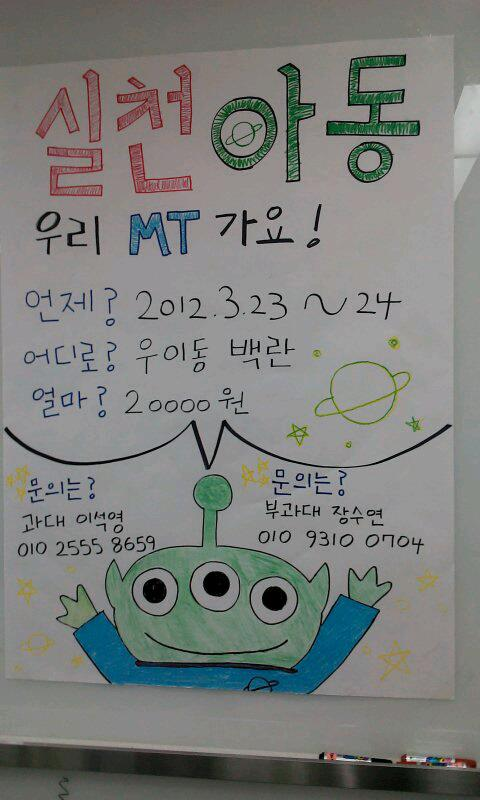 실천아동
우리 MT 가요!
언제? 2012.3.23 ~ 24
어디로? 우이동 백란
얼마? 20000 원
문의는?
과대 이석영
010 2555 8659
문의는?
부과대 장수연
010 9310 0704